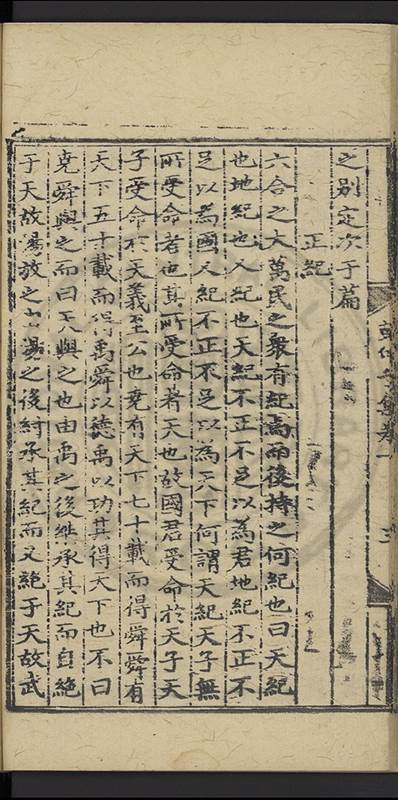 之別定次于篇
正紀
六合之大萬民之衆有紀焉而後持之何紀也曰天紀
也地紀也人紀也天紀不正不足以為君地紀不正不
足以為國人紀不正不足以為天下何謂天紀天子無
所受命者也其所受命者天也故國君受命於天子天
子受命於天義至公也堯有天下七十載而得舜舜有
天下五十載而得禹舜以德禹以功其得天下也不曰
堯舜與之而曰天與之也由禹之後継承其紀而自絕
于天故湯放之由湯之後紂承其紀而又絕于天故武